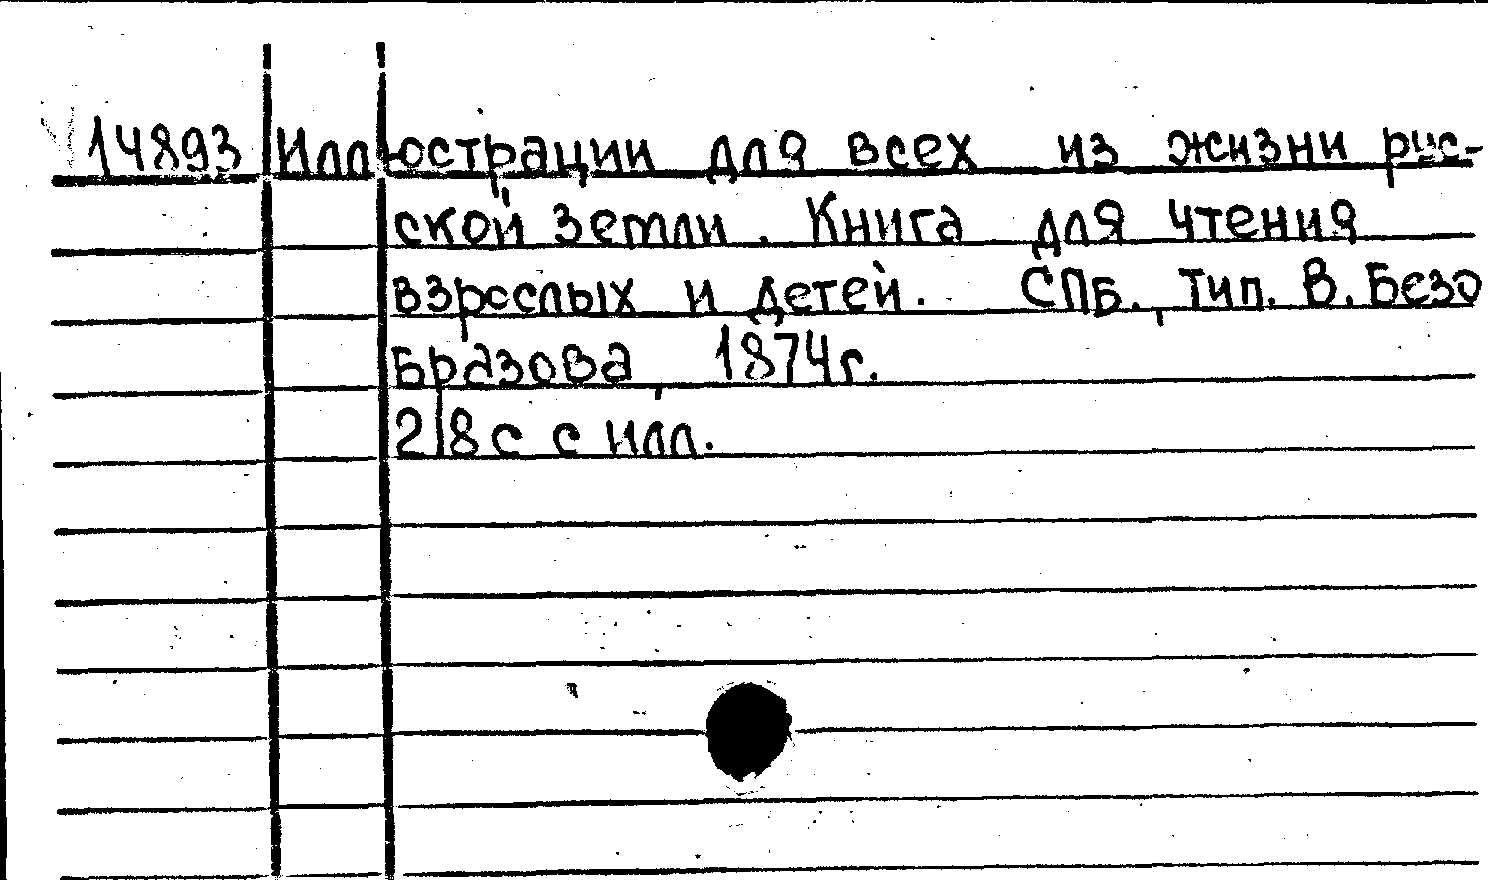 14893 Иллюстрации для всех из жизни рус-
ской земли. Книга для чтения
взрослых и детей. СПБ., Тип. В. Безо
Бразова, 1874г.
218 с с илл.